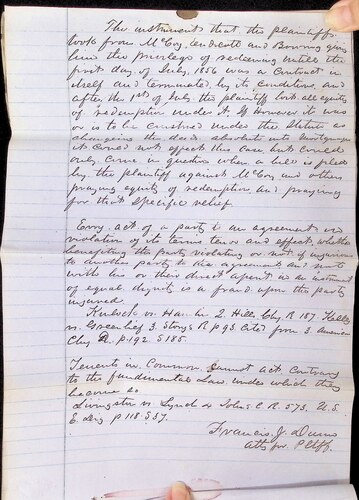 The instrument that the plaintiffs
took from McCoy, Endicott and Bowring giving
him the privilege of redeeming until the
first day of July, 1856 was a contract in
itself and terminated by its conditions and
after the 1st of July the plaintiff lost all equity
of redemption under it If However it was
or is to be construed under the Statute as
changing the deed absolute into Mortgage
it could not effect this case, but could
only come in question when a bill is filed
by the plaintiff against McCoy and others
praying equity of redemption and praying
for that specific relief.
Every act of a party to an agreement in
violation of its terms tenor and effect whether
benefiting the party violating or not if injurious
to another party to the agreement and not
with his or their direct assent in an instrument
of equal dignity is a fraud upon the party
injured.
vs. 2 Hill Chy. R 187. Kelly
vs. Greenleif 3. Storys R p 93 cited from 3. American
Chy D. p. 192. S 185.
Tenents in Common cannot act contrary
to the fundamental Law under which they
become so
Livingston vs Lynch 4 Johns C. R. 573. U.S.
E. Dig p 118 S 37.
Francis J. Dunn
atty for Pltff.